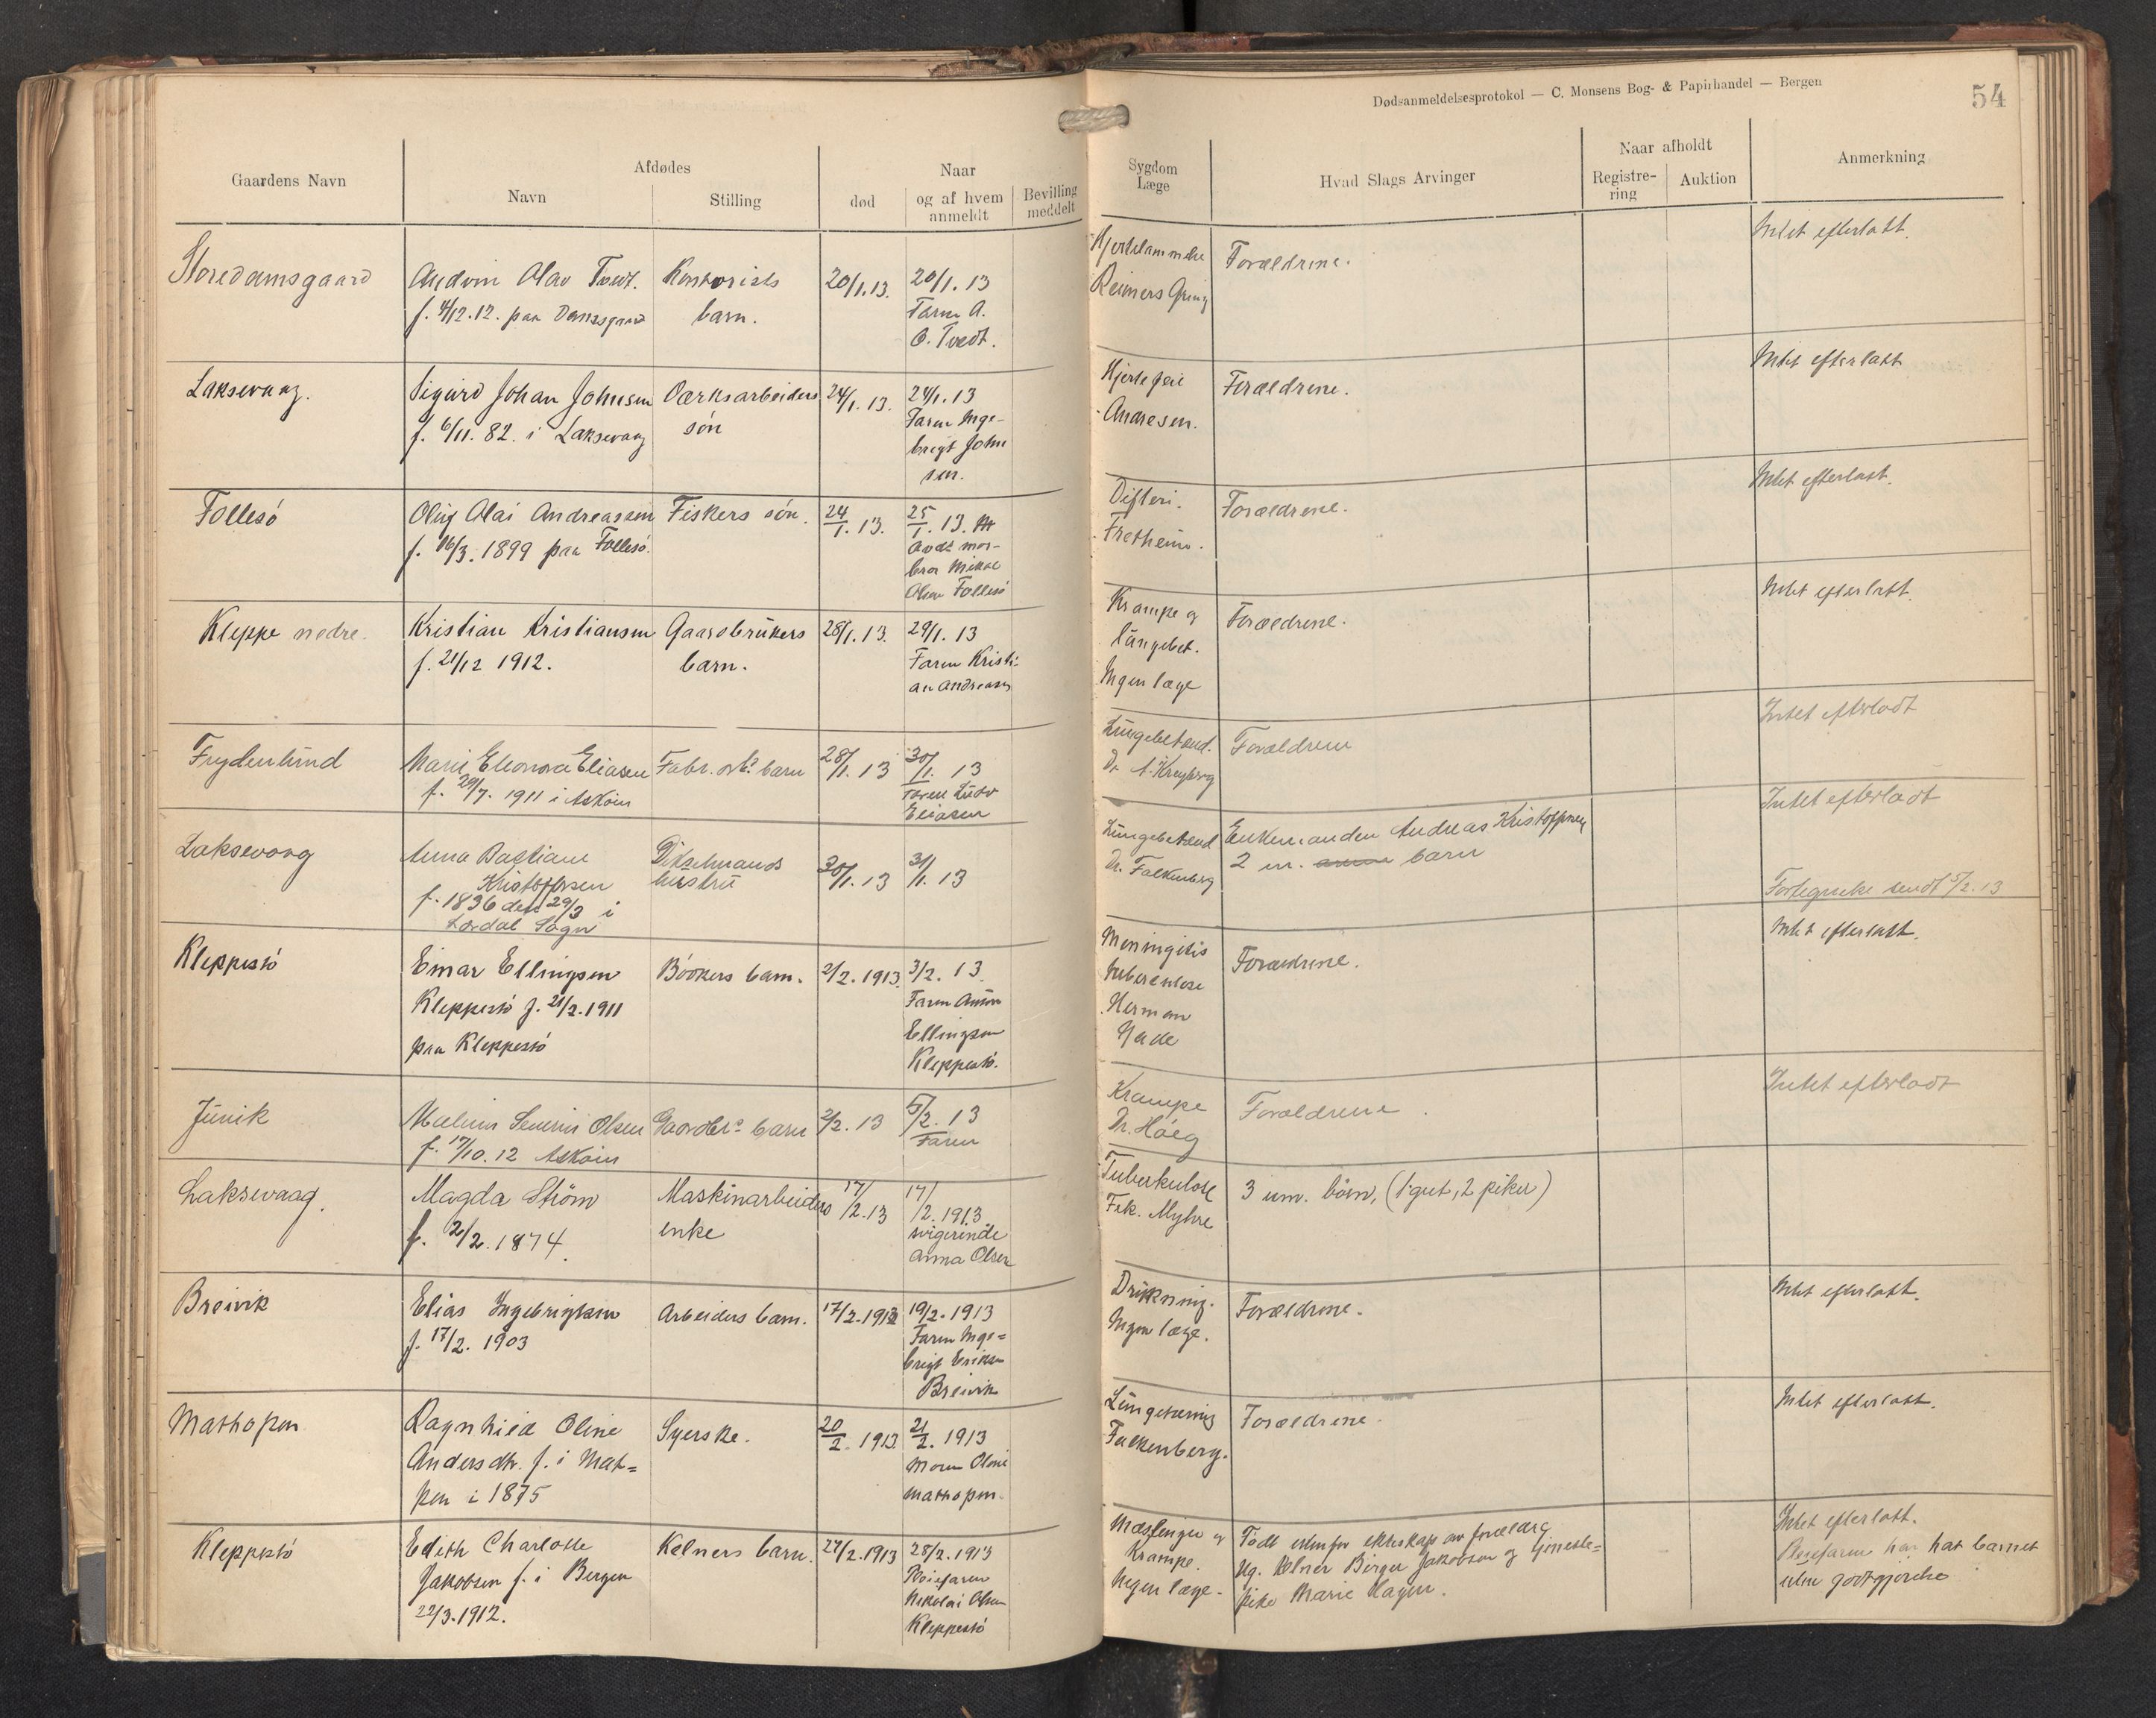 Dødsanmeldelsesprotokol — C. Monsens Bog- & Papirhandel — Bergen
54
Gaardens Navn
Afdødes
Navn
Stilling
død
Naar
og af hvem
anmeldt
Bevilling
meddelt
Sygdom
Læge
Hvad Slags Arvinger
Naar afholdt
Registre-
ring
Auktion
Anmerkning
Storedamsgaard
Audvin Olav Tvedt.
f. 4/12.12. paa Damsgaard
Kontorists
barn.
20/1.13.
20/1.13
Faren A.
O. Tvedt.
Hjertelammelse
Reimers
Forældrene.
Intet efterlatt.
Laksevaag.
Sigurd Johan Johnsen
f. 6/11. 82. i Laksevaag
Værksarbeiders
søn
24/1.13.
24/1.13
Faren Inge-
brigt John
sen.
Hjertefeil
Andresen.
Forældrene.
Intet efterlatt
Follesö
Olai Andreassen
f. 16/3. 1899 paa Follesö.
Fiskers søn.
24/1.13.
25/1.13.
Avdt mor-
bror Mikal
Olsen Follesö
Difteri.
Fretheim.
Forældrene.
Intet efterlatt.
Kleppe nedre.
Kristian Kristiansen
f. 21/12 1912.
Gaardbrukers
barn.
28/1.13.
29/1.13
Faren Kristi-
an Andreasen
Krampe og
lungebet.
Ingen læge
Forældrene.
Intet efterlatt.
Frydenlund
Marie Eleonora Eliasen
f. 29/7. 1911 i Askøen
Fabr. arb. barn
28/1.13
30/1.13
Faren Ludv
Eliasen
Lungebetænd.
Dr. Kreyberg
Forældrene
Intet efterladt
Laksevaag
Anna Bastiane
Kristoffersen
f. 1836 den 29/3 i
Lærdal Sogn
hustru
30/1.13
31/1.13
Lungebetænd
Dr. Falkenberg
Enkemanden Andreas Kristoffersen
2 m. barn
Intet efterladt
Fortegnelse sendt 5/2.13
Kleppesö
Einar Ellingsen
Kleppesö f. 21/2.1911
paa Kleppesö
Bødkers barn.
2/2.1913.
3/2.13.
Faren Anton
Ellingsen
Kleppesö.
Meningitis
tuberculose
Herman
Gade
Forældrene.
Intet efterlatt.
Juvik
Severin Olsen
f. 17/10.12 Askøen
Gaardbr. barn
2/2.13
5/2.13
Faren
Krampe
Dr. Høeg
Forældrene.
Intet efterladt
Laksevaag.
Magda Strøm
f. 2/2.1874.
Maskinarbeiders
enke
17/2.13
17/2.1913
svigerinde
Anna Olsen
Tuberkulose
Frk. Myhre
3 um. børn, (1 gut, 2 piker)
Breivik
Elias Ingebrigtsen
f. 17/2. 1903
Arbeiders barn.
17/2.1913
19/2.1913
Faren Inge=
brigt Eriksen
Breivik
Drukning.
Ingen læge.
Forældrene.
Intet efterlatt.
Mathopen
Ragnhild Oline
Andersdtr. f. i Mat=
pen i 1875
Syerske.
20/2.1913
21/2.1913
Moren Oline
Mathopen.
Lungetæring
Falkenberg.
Forældrene.
Intet efterlatt.
Kleppesö
Edith Charlotte
Jakobsen f. i Bergen
22/3.1912.
Kelners barn.
27/2.1913
28/2.1913
Pleiefaren
Nikolai Olsen
Kleppesö
Mæslinger og
Krampe.
Ingen læge.
Født utenfor ekteskap av forældre
Ug. Kelner Birger Jakobsen og tjeneste=
pike Marie Hagen.
Intet efterlatt.
Pleiefaren har hat barnet
uten godtgjørelse